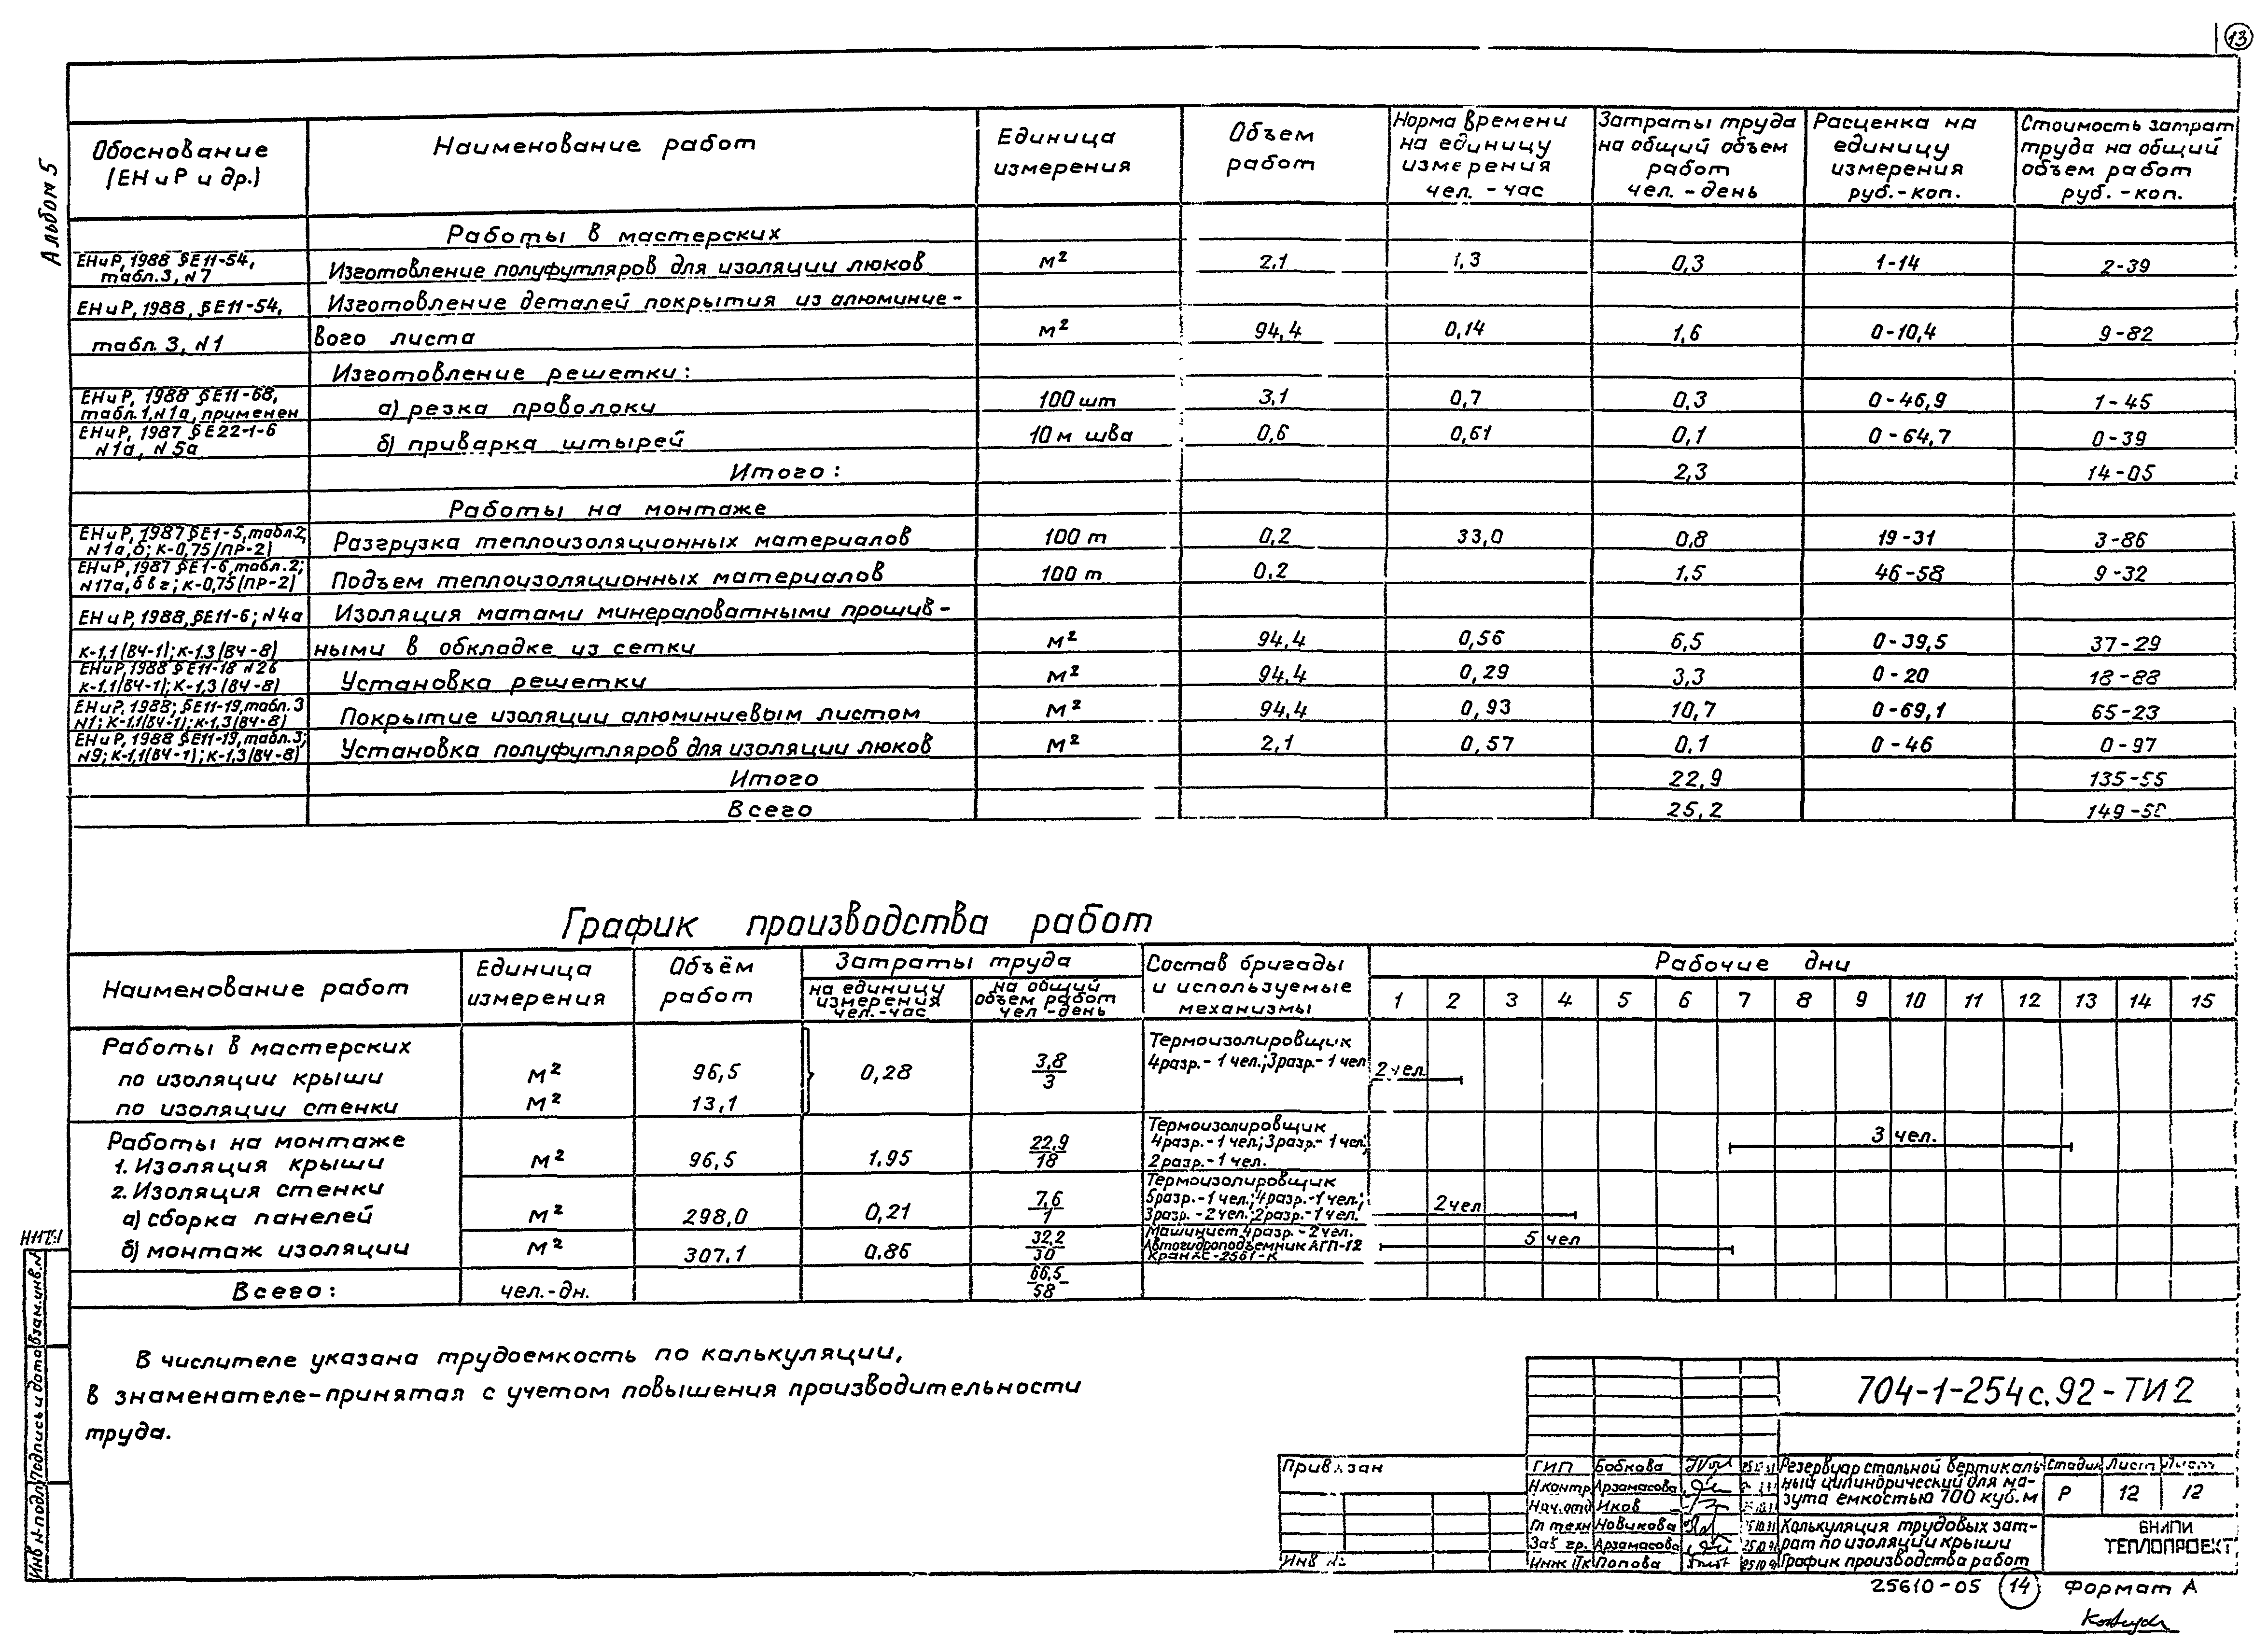 13
Альбом 5
Обоснование (ЕНиР и др.) | Наименование работ | Единица измерения | Объем работ | Норма времени на единицу измерения чел.-час | Затраты труда на общий объем работ чел.-день | Расценка на единицу измерения руб.-коп. | Стоимость затрат труда на общий объем работ руб.-коп.
Работы в мастерских
ЕНиР, 1988 §Е11-54, табл.3, №7 | Изготовление полуфутляров для изоляции люков | м² | 2,1 | 1,3 | 0,3 | 1-14 | 2-39
ЕНиР, 1988, §Е11-54, | Изготовление деталей покрытия из алюминие-
табл. 3, №1 | вого листа | м² | 94,4 | 0,14 | 1,6 | 0-10,4 | 9-82
Изготовление решетки:
ЕНиР, 1988 §Е11-68, табл.1, №1а, применен | а) резка проволоки | 100 шт | 3,1 | 0,7 | 0,3 | 0-46,9 | 1-45
ЕНиР, 1987 §Е22-1-6 №1а, №5а | б) приварка штырей | 10 м шва | 0,6 | 0,61 | 0,1 | 0-64,7 | 0-39
Итого: | 2,3 | 14-05
Работы на монтаже
ЕНиР, 1987 §Е1-5, табл2, №1а,б; К-0,75/ПР-2) | Разгрузка теплоизоляционных материалов | 100 т | 0,2 | 33,0 | 0,8 | 19-31 | 3-86
ЕНиР, 1987 §Е1-6, табл.2; №17а,б в г; К-0,75(ПР-2) | Подъем теплоизоляционных материалов | 100 т | 0,2 | 1,5 | 46-58 | 9-32
ЕНиР, 1988, §Е11-6; №4а | Изоляция матами минераловатными прошив-
К-1,1(ВЧ-1); К-1,3(ВЧ-8) | ными в обкладке из сетки | м² | 94,4 | 0,56 | 6,5 | 0-39,5 | 37-29
ЕНиР, 1988 §Е11-18 №26 К-1,1(ВЧ-1); К-1,3(ВЧ-8) | Установка решетки | м² | 94,4 | 0,29 | 3,3 | 0-20 | 18-88
ЕНиР, 1988; §Е11-19, табл. 3 №1; К-1,1(ВЧ-1); К-1,3(ВЧ-8) | Покрытие изоляции алюминиевым листом | м² | 94,4 | 0,93 | 10,7 | 0-69,1 | 65-23
ЕНиР, 1988 §Е11-19, табл.3; №9; К-1,1(ВЧ-1); К-1,3(ВЧ-8) | Установка полуфутляров для изоляции люков | м² | 2,1 | 0,57 | 0,1 | 0-46 | 0-97
Итого | 22,9 | 135-55
Всего | 25,2
График производства работ
Наименование работ | Единица измерения | Объём работ | Затраты труда | на единицу измерения чел.-час | на общий объем работ чел-день | Состав бригады и используемые механизмы | Рабочие дни
1 2 3 4 5 6 7 8 9 10 11 12 13 14 15
Работы в мастерских
по изоляции крыши | м² | 96,5 | 0,28 | 3,8/3 | Термоизолировщик 4разр.-1чел.; 3разр.-1чел | 2чел.
по изоляции стенки | м² | 13,1
Работы на монтаже
1. Изоляция крыши | м² | 96,5 | 1,95 | 22,9/18 | Термоизолировщик 4разр.-1чел.; 3разр.-1чел; 2разр.-1чел. | 3 чел.
2. Изоляция стенки
а) сборка панелей | м² | 298,0 | 0,21 | 7,6/1 | Термоизолировщик 5разр.-1чел.; 4разр.-1чел.; 3разр.-2чел.; 2разр.-1чел. | 2чел
б) монтаж изоляции | м² | 307,1 | 0,86 | 32,2/30 | Машинист 4разр.-2чел. Автогидроподъемник АГП-12 Кран КС-2561-К | 5 чел
Всего: | чел.-дн. | 66,5/58
В числителе указана трудоемкость по калькуляции,
в знаменателе-принятая с учетом повышения производительности
труда.
Инв № подл | Подпись и дата | Взам.инв.№
704-1-254с.92-ТИ2
Привязан
Инв №
ГИП Бобкова
Н.контр Арзамасова
Нач.отд Иков
Гл техн Новикова
Зав гр. Арзамасова
Инж Iк Попова
Резервуар стальной вертикаль-
ный цилиндрический для ма-
зута емкостью 700 куб.м
Калькуляция трудовых зат-
рат по изоляции крыши
График производства работ
Стадия Лист Листов
Р 12 12
ВНИПИ
ТЕПЛОПРОЕКТ
25610-05 14 Формат А